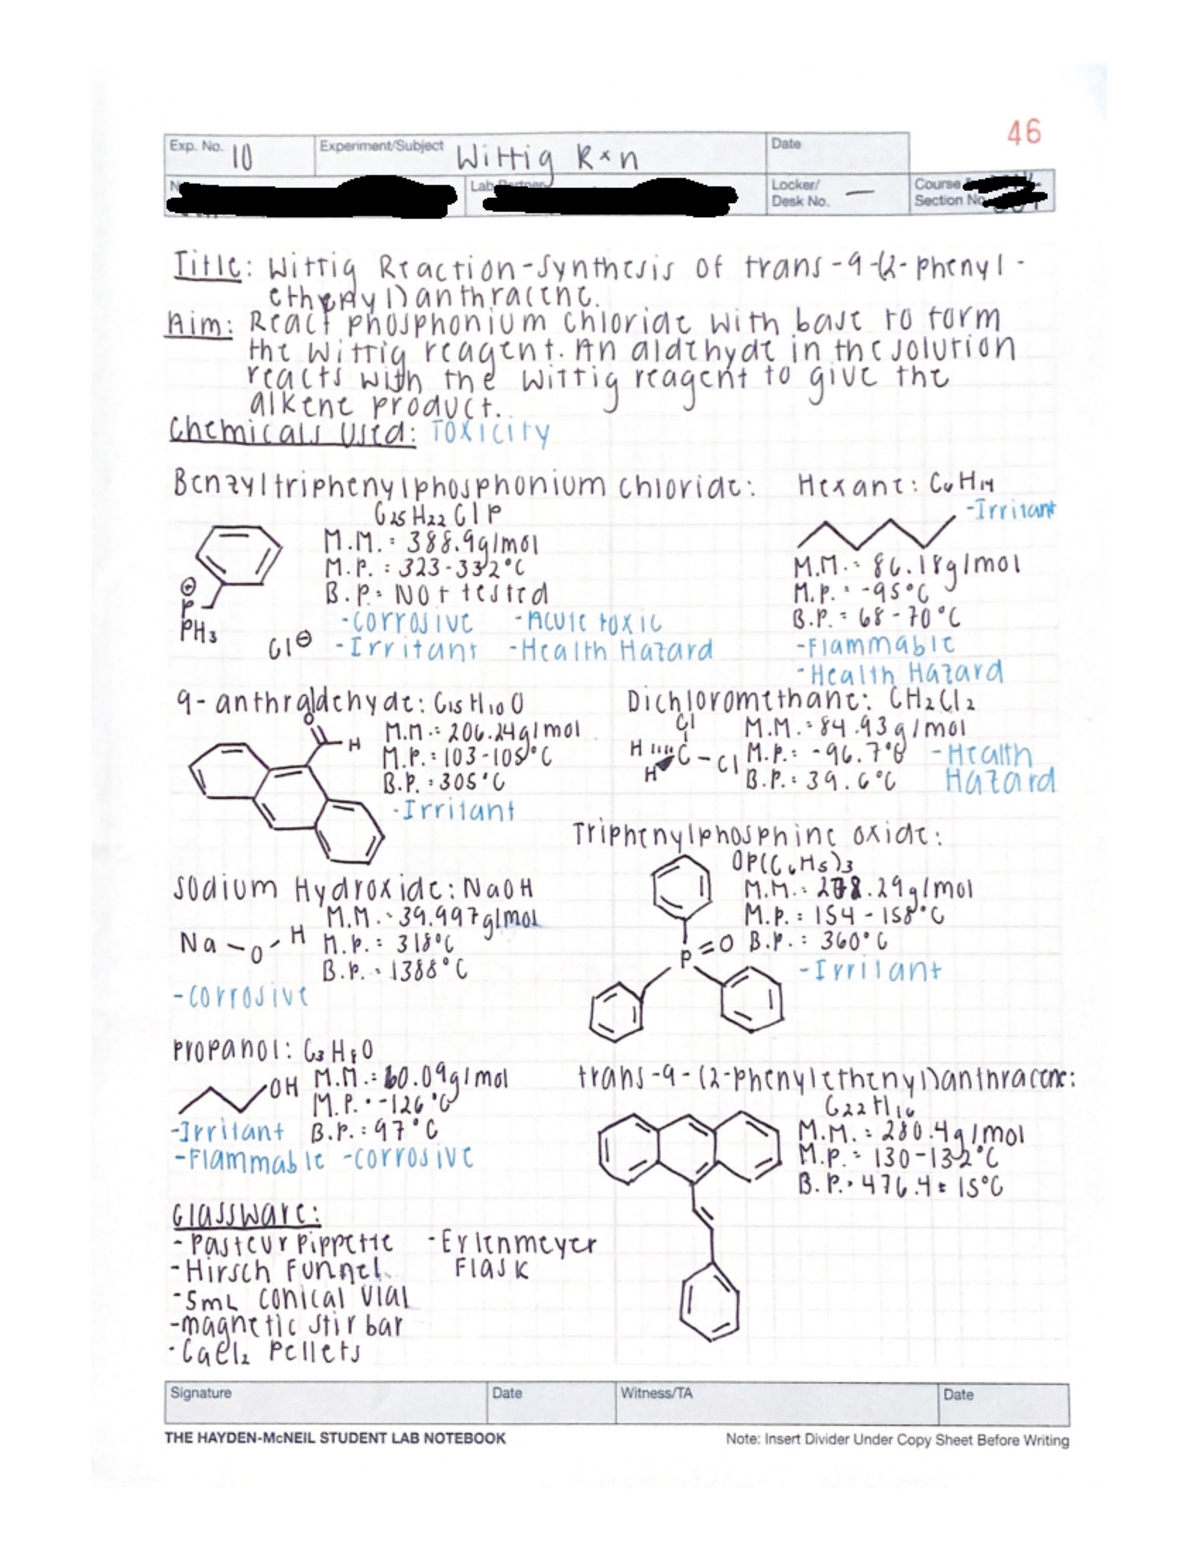 46
Exp. No. 10
Experiment/Subject Wittig Rxn
Date
Lab Partner
Locker/
Desk No. —
Course &
Section No.
Title: Wittig Reaction-Synthesis of trans-9-(2-phenyl-
ethenyl)anthracene.
Aim: React phosphonium chloride with base to form
the Wittig reagent. An aldehyde in the solution
reacts with the Wittig reagent to give the
alkene product.
Chemicals Used: Toxicity
Benzyltriphenylphosphonium chloride:
C25H22ClP
M.M. = 388.9g/mol
M.P. : 323-332°C
B.P. = Not tested
-Corrosive -Acute toxic
-Irritant -Health Hazard
⊕
P
PH3
Cl⊖
Hexane: C6H14
-Irritant
M.M. = 86.18g/mol
M.P. = -95°C
B.P. = 68-70°C
-Flammable
-Health Hazard
9-anthraldehyde: C15H10O
O
H
M.M. = 206.24g/mol
M.P. = 103-105°C
B.P. = 305°C
-Irritant
Dichloromethane: CH2Cl2
Cl
H C - Cl
H
M.M. = 84.93g/mol
M.P. = -96.7°C
B.P. = 39.6°C
-Health
Hazard
Triphenylphosphine oxide:
OP(C6H5)3
M.M. = 278.29g/mol
M.P. = 154-158°C
B.P. = 360°C
-Irritant
P=O
Sodium Hydroxide: NaOH
M.M. = 39.997g/mol
M.P. = 318°C
B.P. = 1388°C
Na-O-H
-Corrosive
Propanol: C3H8O
OH
M.M. = 60.09g/mol
M.P. = -126°C
B.P. : 97°C
-Irritant
-Flammable -corrosive
trans-9-(2-phenylethenyl)anthracene:
C22H16
M.M. = 280.4g/mol
M.P. = 130-132°C
B.P. = 476.4± 15°C
Glassware:
-Pasteur Pippette
-Hirsch Funnel
-5mL conical vial
-magnetic stir bar
-CaCl2 Pellets
-Erlenmeyer
Flask
Signature
Date
Witness/TA
Date
THE HAYDEN-McNEIL STUDENT LAB NOTEBOOK
Note: Insert Divider Under Copy Sheet Before Writing